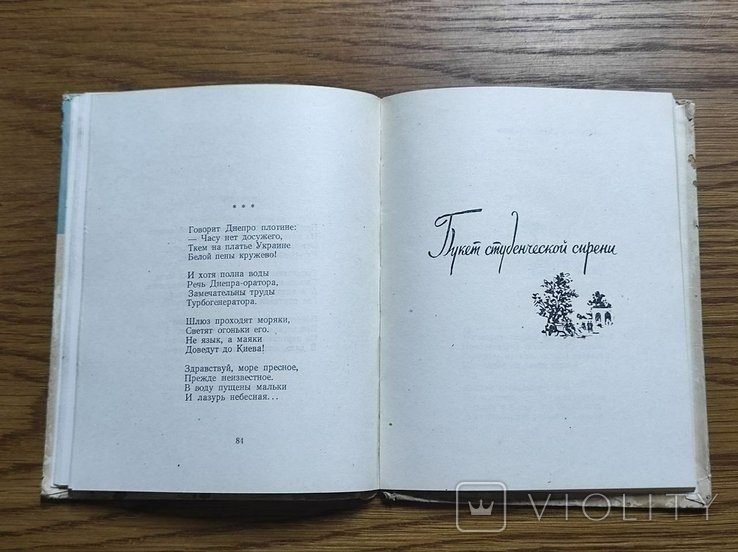 * * *
Говорит Днепро плотине:
— Часу нет досужего,
Ткем на платье Украине
Белой пены кружево!
И хотя полна воды
Речь Днепра-оратора,
Замечательны труды
Турбогенератора.
Шлюз проходят моряки,
Светят огоньки его.
Не язык, а маяки
Доведут до Киева!
Здравствуй, море пресное,
Прежде неизвестное.
В воду пущены мальки
И лазурь небесная...
84
Букет студенческой сирени
VIOLITY